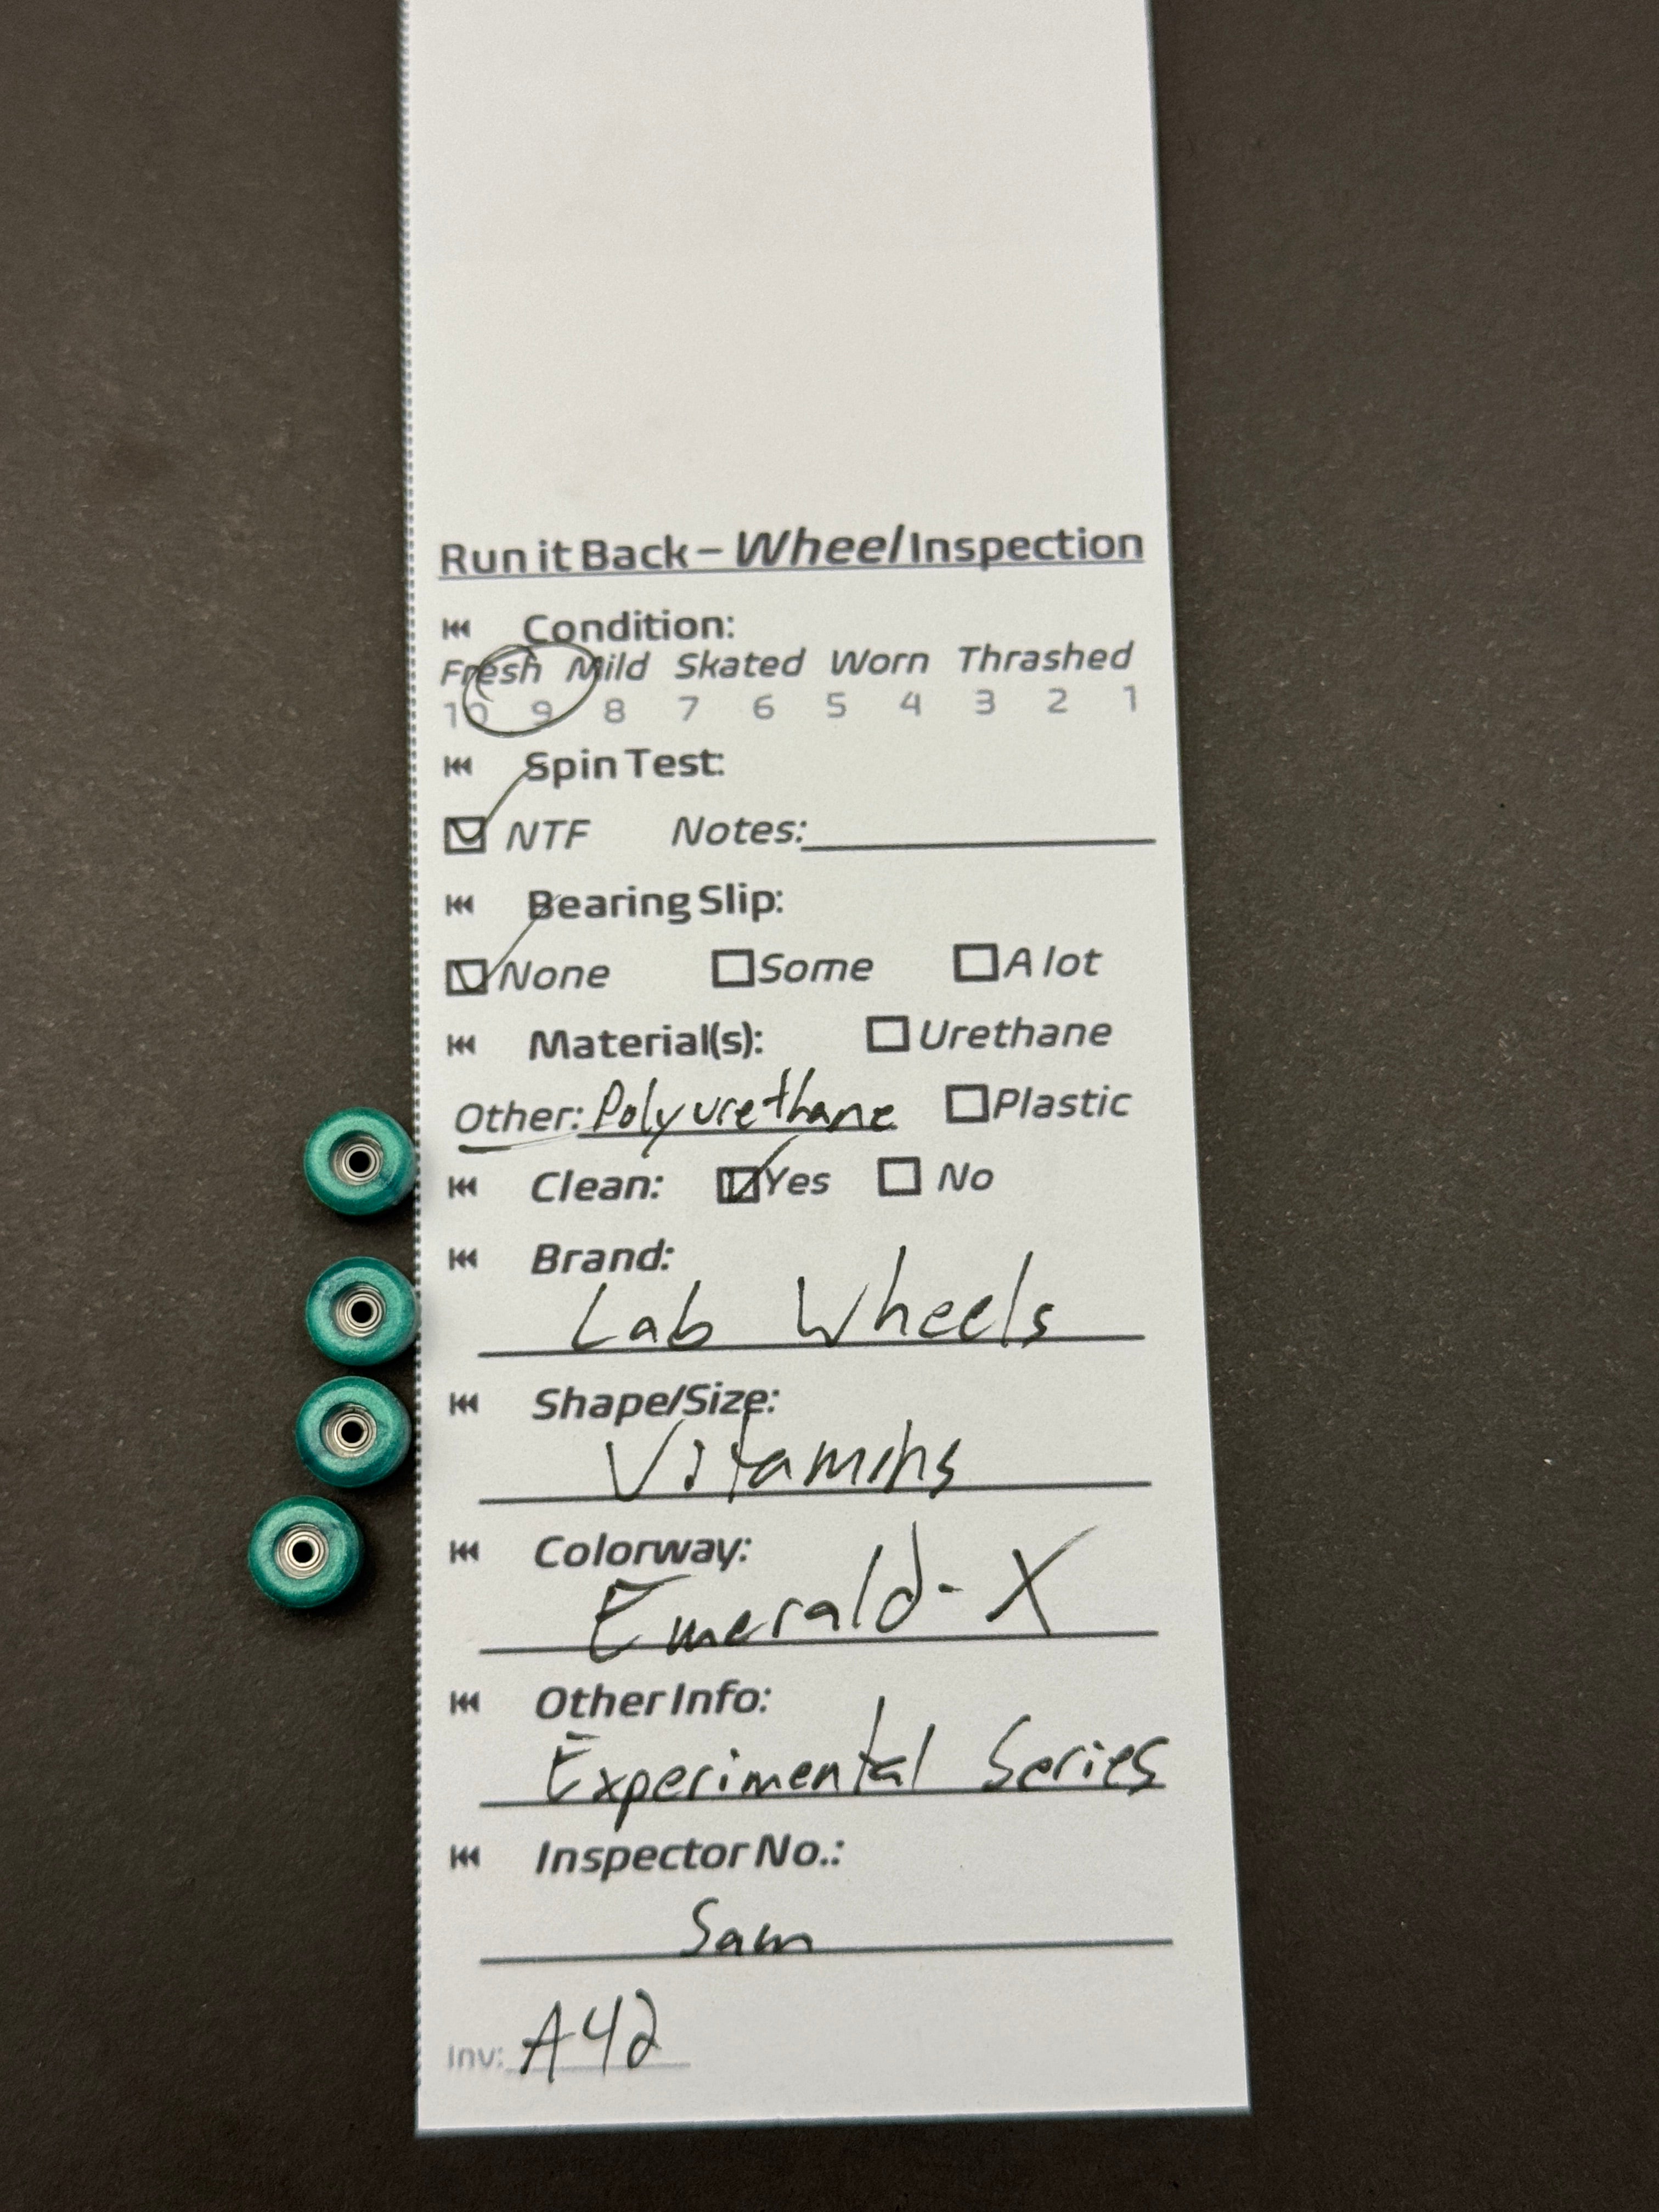 Run it Back – Wheel Inspection
Condition:
Fresh Mild Skated Worn Thrashed
10 9 8 7 6 5 4 3 2 1
Spin Test:
NTF Notes:
Bearing Slip:
None Some A lot
Material(s): Urethane
Other: Polyurethane Plastic
Clean: Yes No
Brand:
Lab Wheels
Shape/Size:
Vitamins
Colorway:
Emerald-X
Other Info:
Experimental Series
Inspector No.:
Sam
Inv: A42